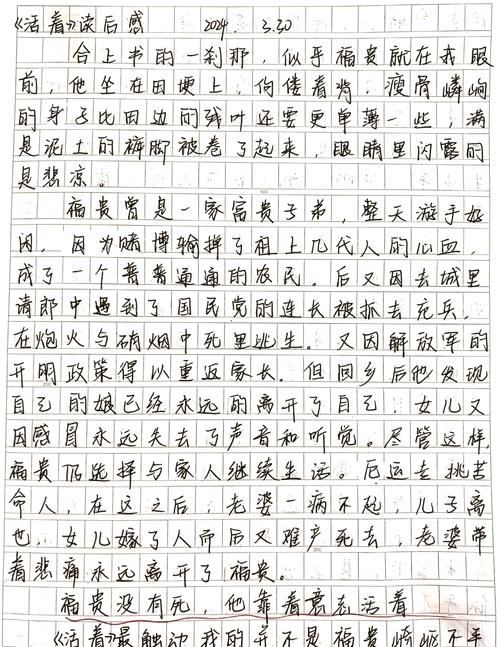 《活着》读后感 2024. 3.30
合上书的一刹那，似乎福贵就在我眼
前，他坐在田埂上，佝偻着背，瘦骨嶙峋
的身子比田边的残叶还要更单薄一些，满
是泥土的裤脚被卷了起来，眼睛里闪露的
是悲凉。
福贵曾是一家富贵子弟，整天游手好
闲，因为赌博输掉了祖上几代人的心血，
成了一个普普通通的农民。后又因去城里
请郎中遇到了国民党的连长被抓去充兵，
在炮火与硝烟中死里逃生。又因解放军的
开明政策得以重返家长。但回乡后他发现
自己的娘已经永远的离开了自己，女儿又
因感冒永远失去了声音和听觉。尽管这样，
福贵仍选择与家人继续生活。厄运专挑苦
命人，在这之后，老婆一病不起，儿子离
也，女儿嫁了人而后又难产死去，老婆带
着悲痛永远离开了福贵。
福贵没有死，他靠着意志活着
《活着》最触动我的并不是福贵崎岖不平